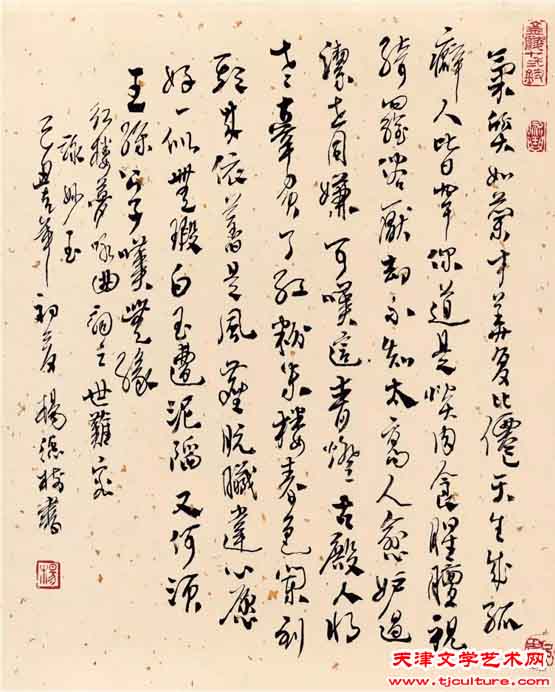 氣質如蘭才華復比僊天生成孤
癖人皆罕你道是啖肉食腥膻視
綺羅俗厭却不知太高人愈妒過
潔世同嫌可嘆這青燈古殿人將
老辜負了紅粉朱樓春色闌到
頭來依舊是風塵骯臟違心愿
好一似無瑕白玉遭泥陷又何須
王孫公子嘆無緣
紅樓夢咏曲詞之世難容
詠妙玉
己丑年初夏楊德樹書
楊
天津文学艺术网
www.tjculture.com